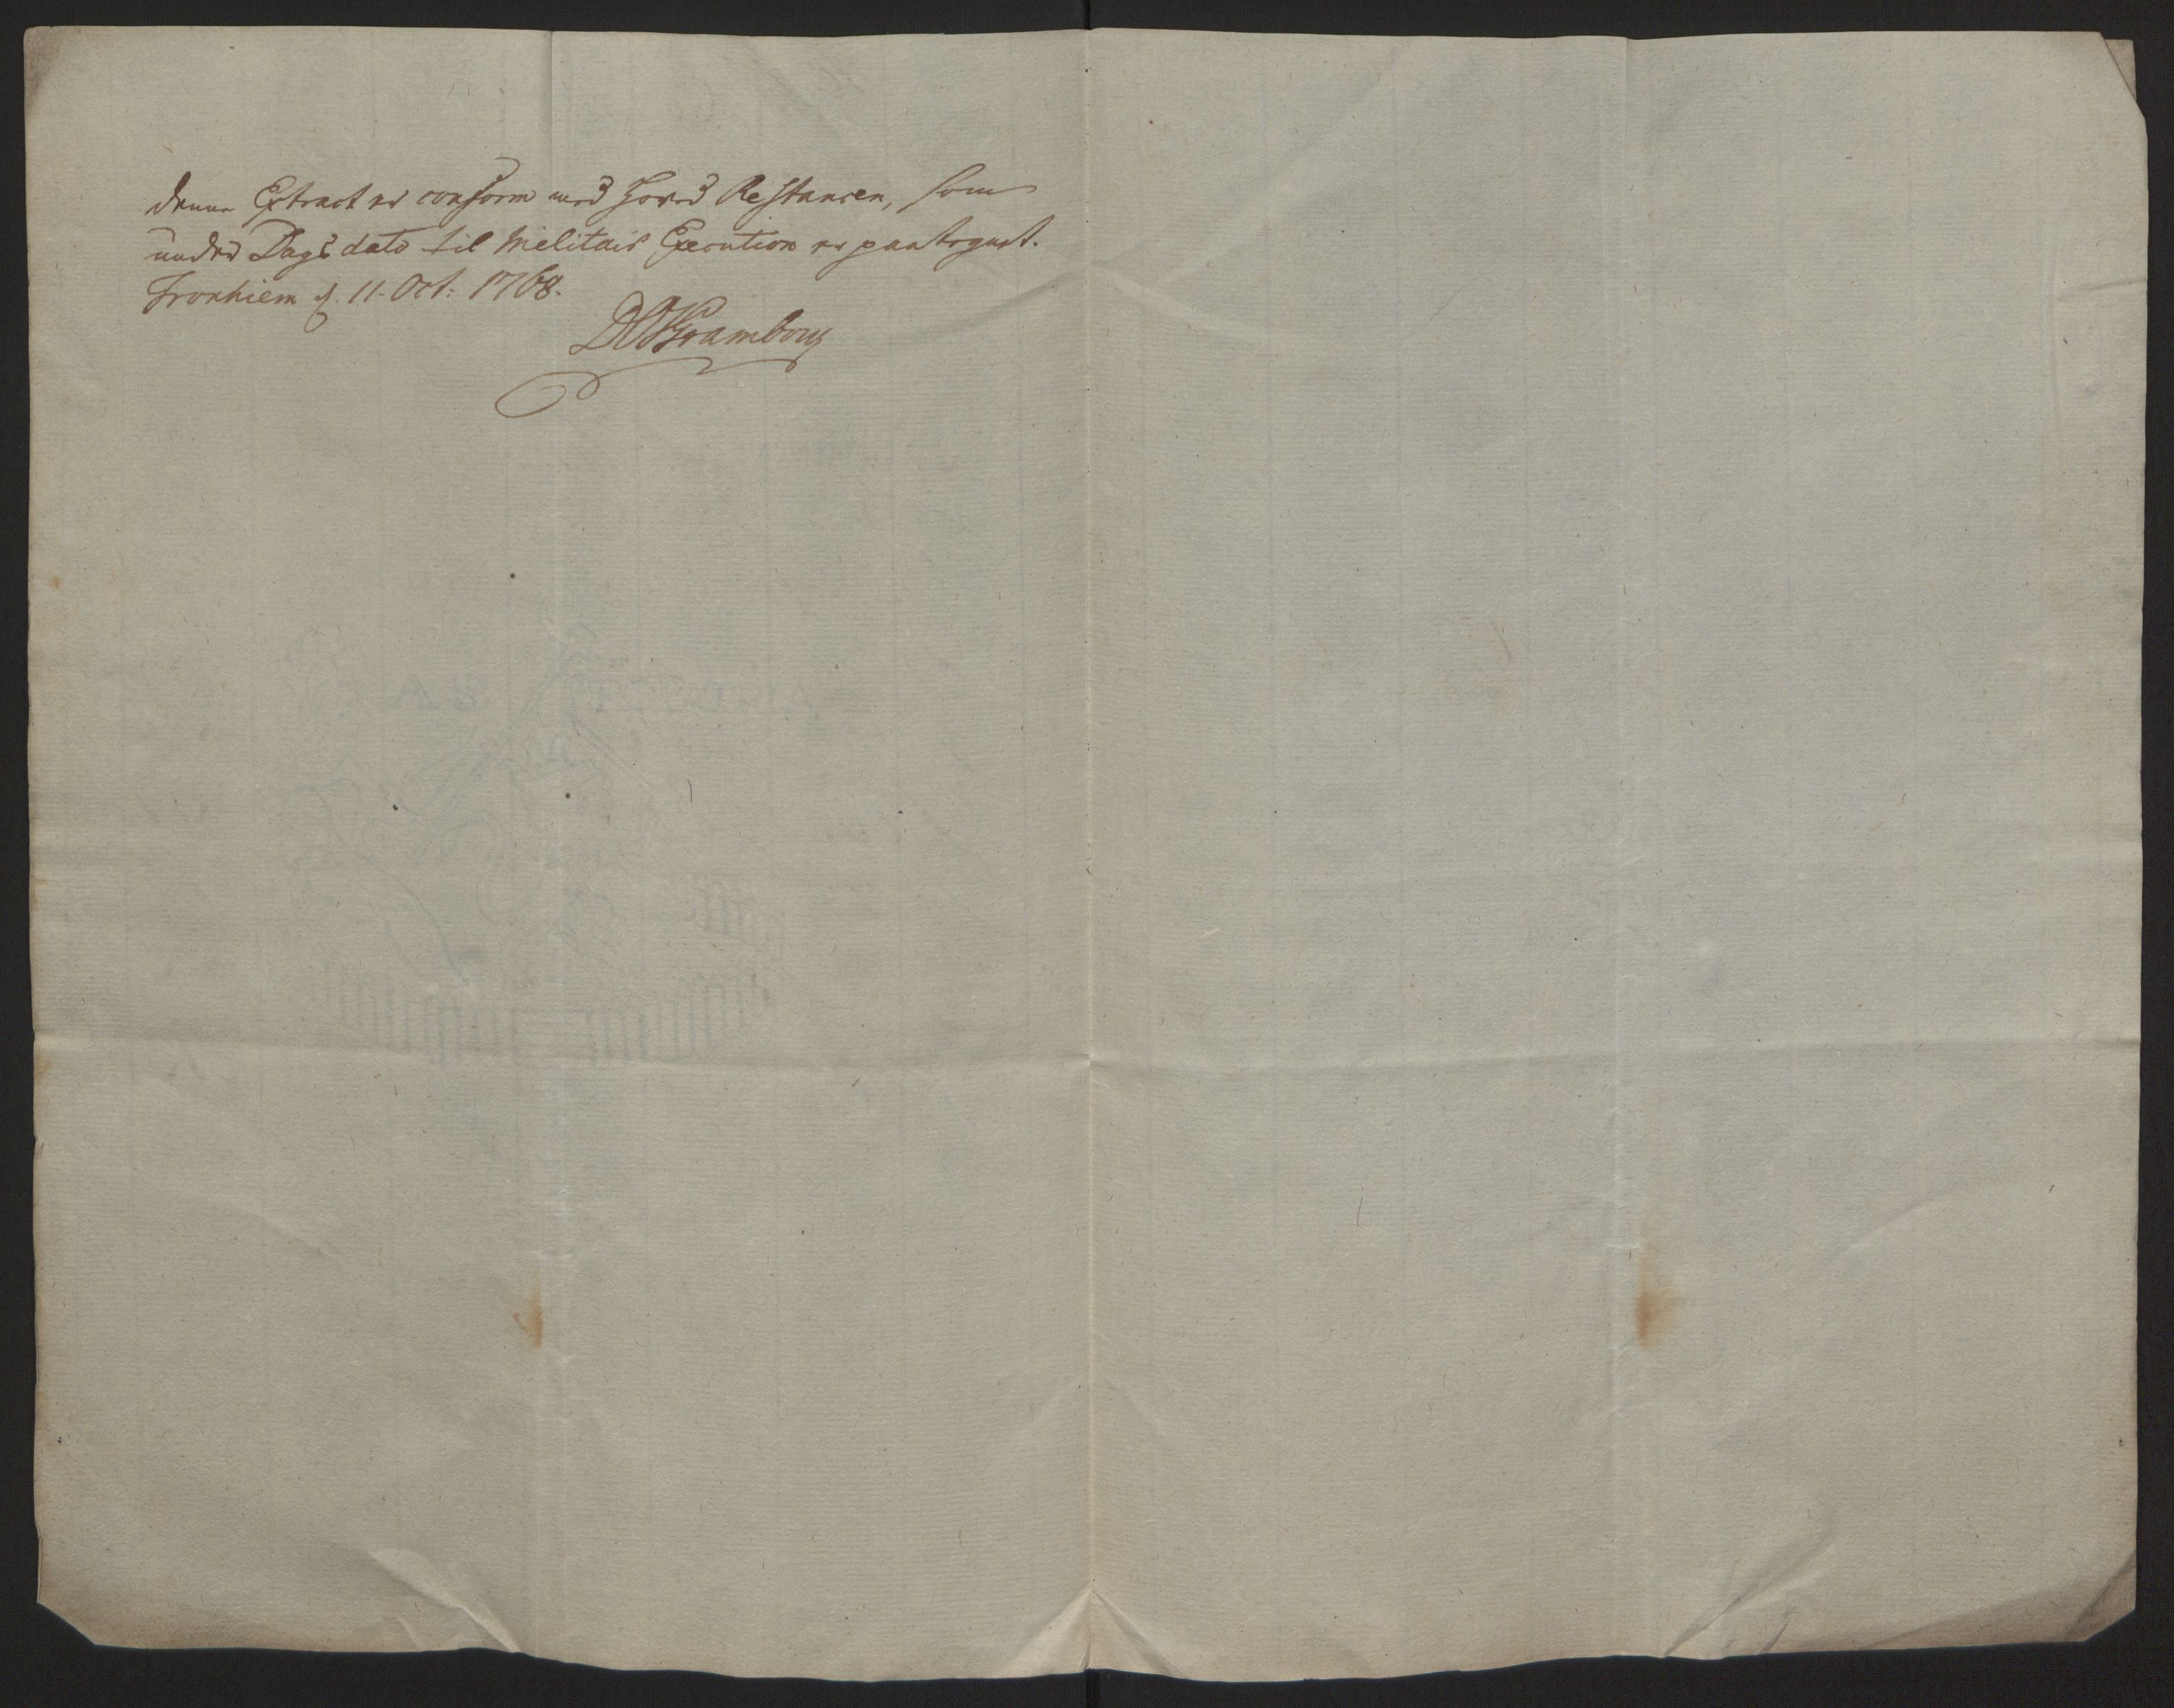 denne Extract er conform med Hoved Restancen, som
under Dags dato til Militair Execution er paategnet.
Tronhiem d. 11. Oct: 1768.
Kramborg